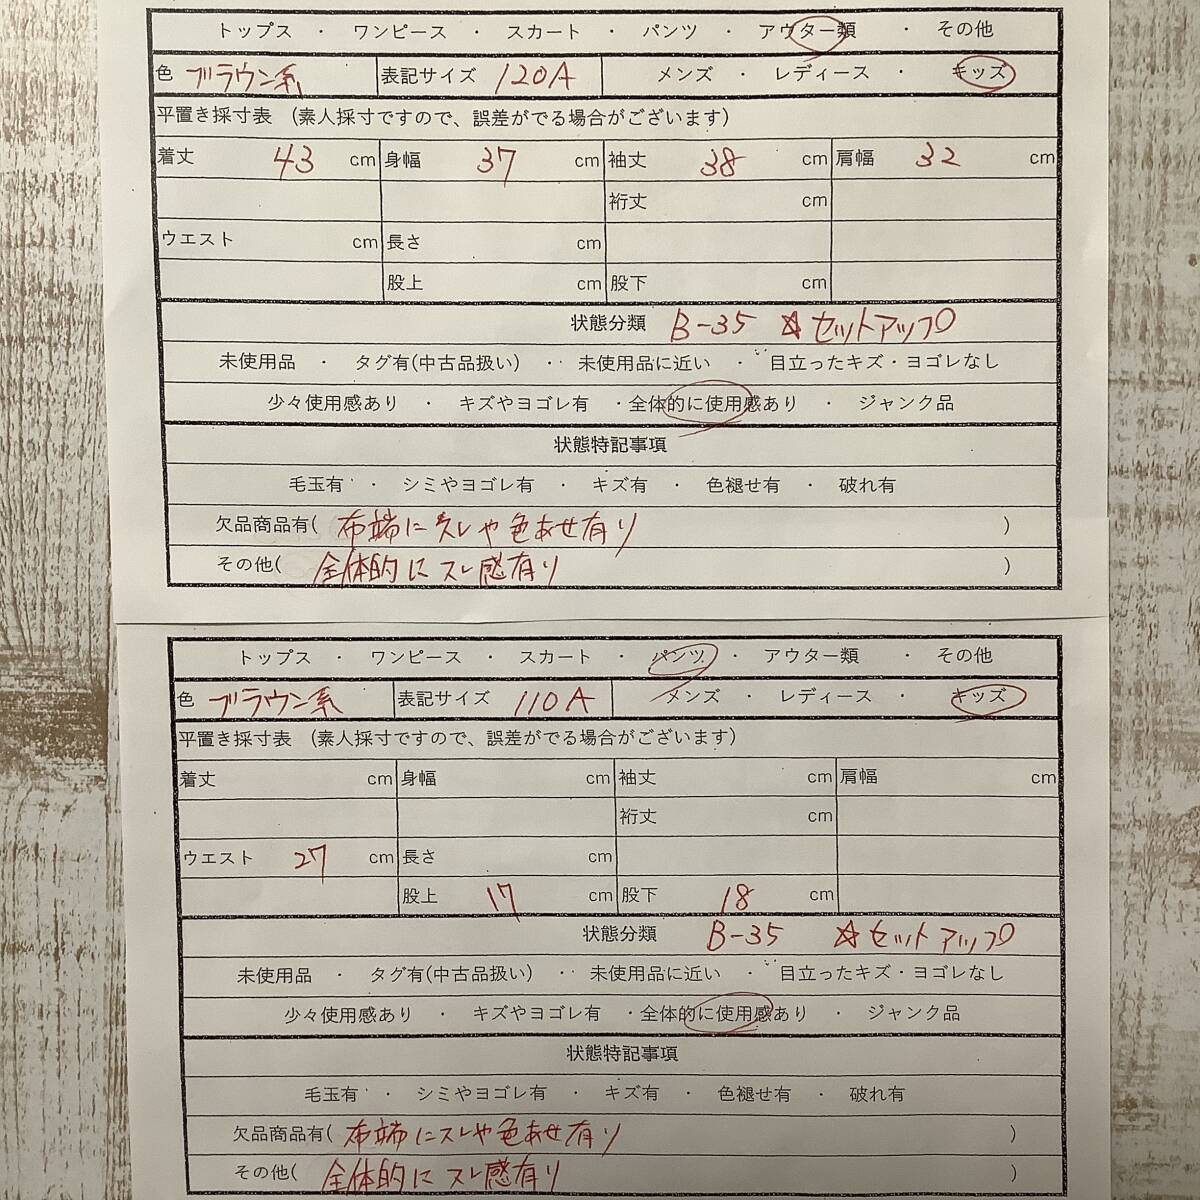 トップス ・ ワンピース ・ スカート ・ パンツ ・ アウター類 ・ その他
色 ブラウン系 表記サイズ 120A メンズ ・ レディース ・ キッズ
平置き採寸表 (素人採寸ですので、誤差がでる場合がございます)
着丈 43 cm 身幅 37 cm 袖丈 38 cm 肩幅 32 cm
裄丈 cm
ウエスト cm 長さ cm
股上 cm 股下 cm
状態分類 B-35 ☆セットアップ
未使用品 ・ タグ有(中古品扱い) ・・ 未使用品に近い ・ 目立ったキズ・ヨゴレなし
少々使用感あり ・ キズやヨゴレ有 ・全体的に使用感あり ・ ジャンク品
状態特記事項
毛玉有 ・ シミやヨゴレ有 ・ キズ有 ・ 色褪せ有 ・ 破れ有
欠品商品有( 布端にスレや色あせ有り )
その他( 全体的にスレ感有り )
トップス ・ ワンピース ・ スカート ・ パンツ ・ アウター類 ・ その他
色 ブラウン系 表記サイズ 110A メンズ ・ レディース ・ キッズ
平置き採寸表 (素人採寸ですので、誤差がでる場合がございます)
着丈 cm 身幅 cm 袖丈 cm 肩幅 cm
裄丈 cm
ウエスト 27 cm 長さ cm
股上 17 cm 股下 18 cm
状態分類 B-35 ☆セットアップ
未使用品 ・ タグ有(中古品扱い) ・・ 未使用品に近い ・ 目立ったキズ・ヨゴレなし
少々使用感あり ・ キズやヨゴレ有 ・全体的に使用感あり ・ ジャンク品
状態特記事項
毛玉有 ・ シミやヨゴレ有 ・ キズ有 ・ 色褪せ有 ・ 破れ有
欠品商品有( 布端にスレや色あせ有り )
その他( 全体的にスレ感有り )